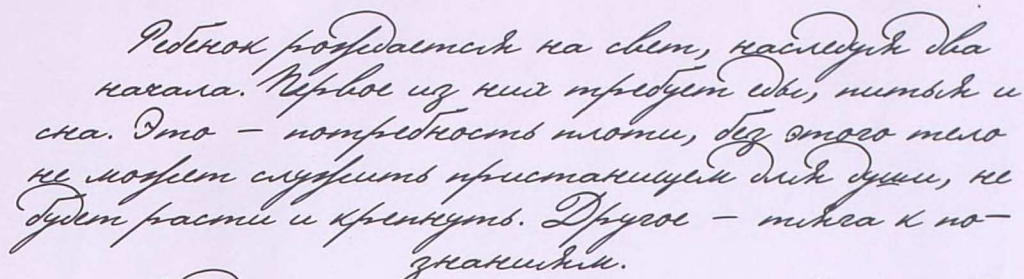 Ребенок рождается на свет, наследуя два
начала. Первое из них требует еды, питья и
сна. Это — потребность плоти, без этого тело
не может служить пристанищем для души, не
будет расти и крепнуть. Другое — тяга к по-
знаниям.